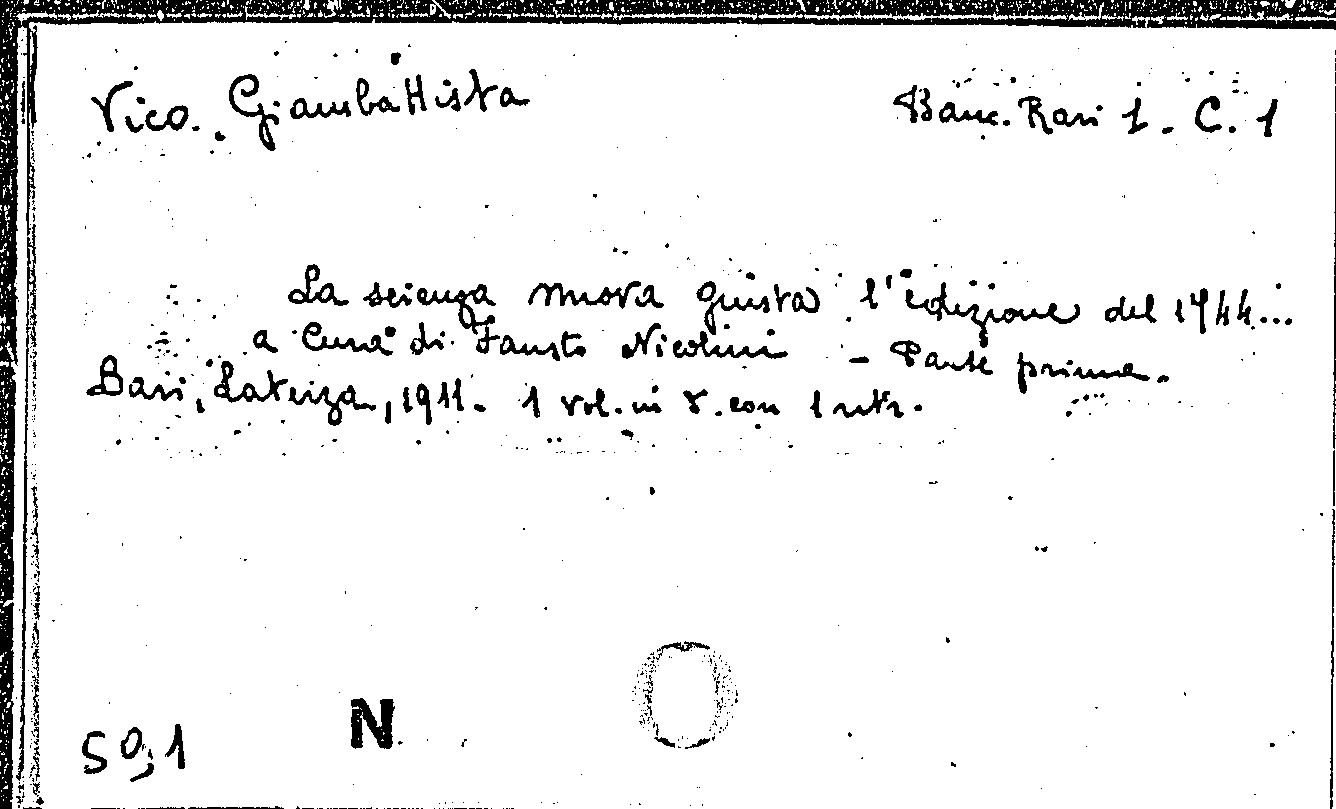 Vico. Giambattista
Banc. Rari 1. C. 1
La scienza nuova giusta l'edizione del 1944...
a cura di Fausto Nicolini - Parte prima.
Bari, Laterza, 1911. 1 vol. in 8. con 1 ritr.
59,1
N